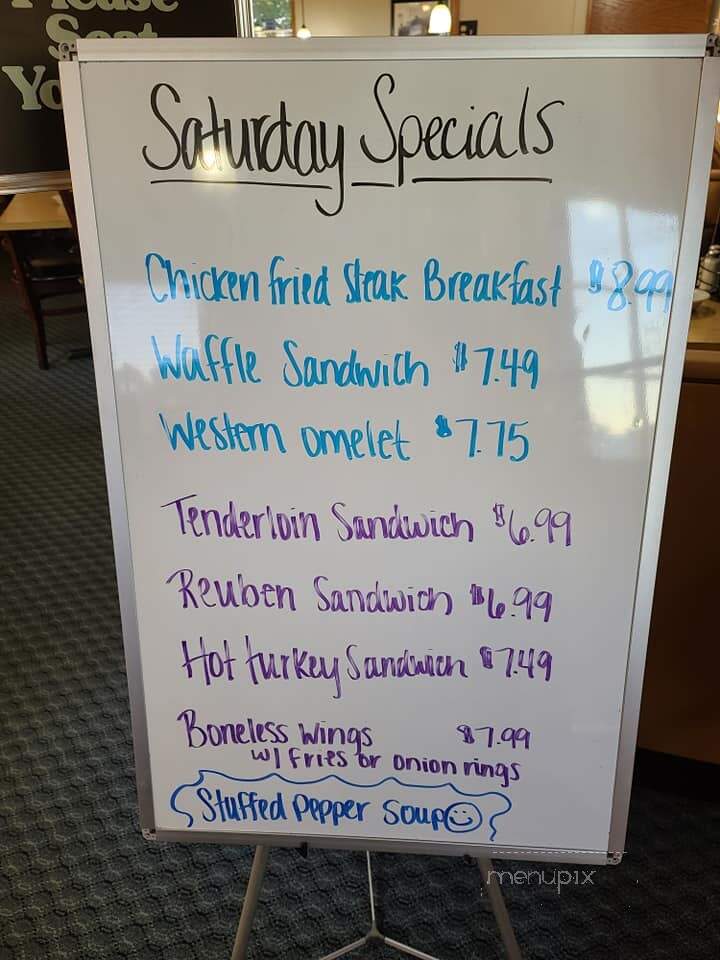 Please
Seat
Yo
Saturday Specials
Chicken fried Steak Breakfast $8.99
Waffle Sandwich $7.49
Western omelet $7.75
Tenderloin Sandwich $6.99
Reuben Sandwich $6.99
Hot turkey Sandwich $7.49
Boneless Wings $7.99
w/ fries or onion rings
Stuffed pepper soup
menupix